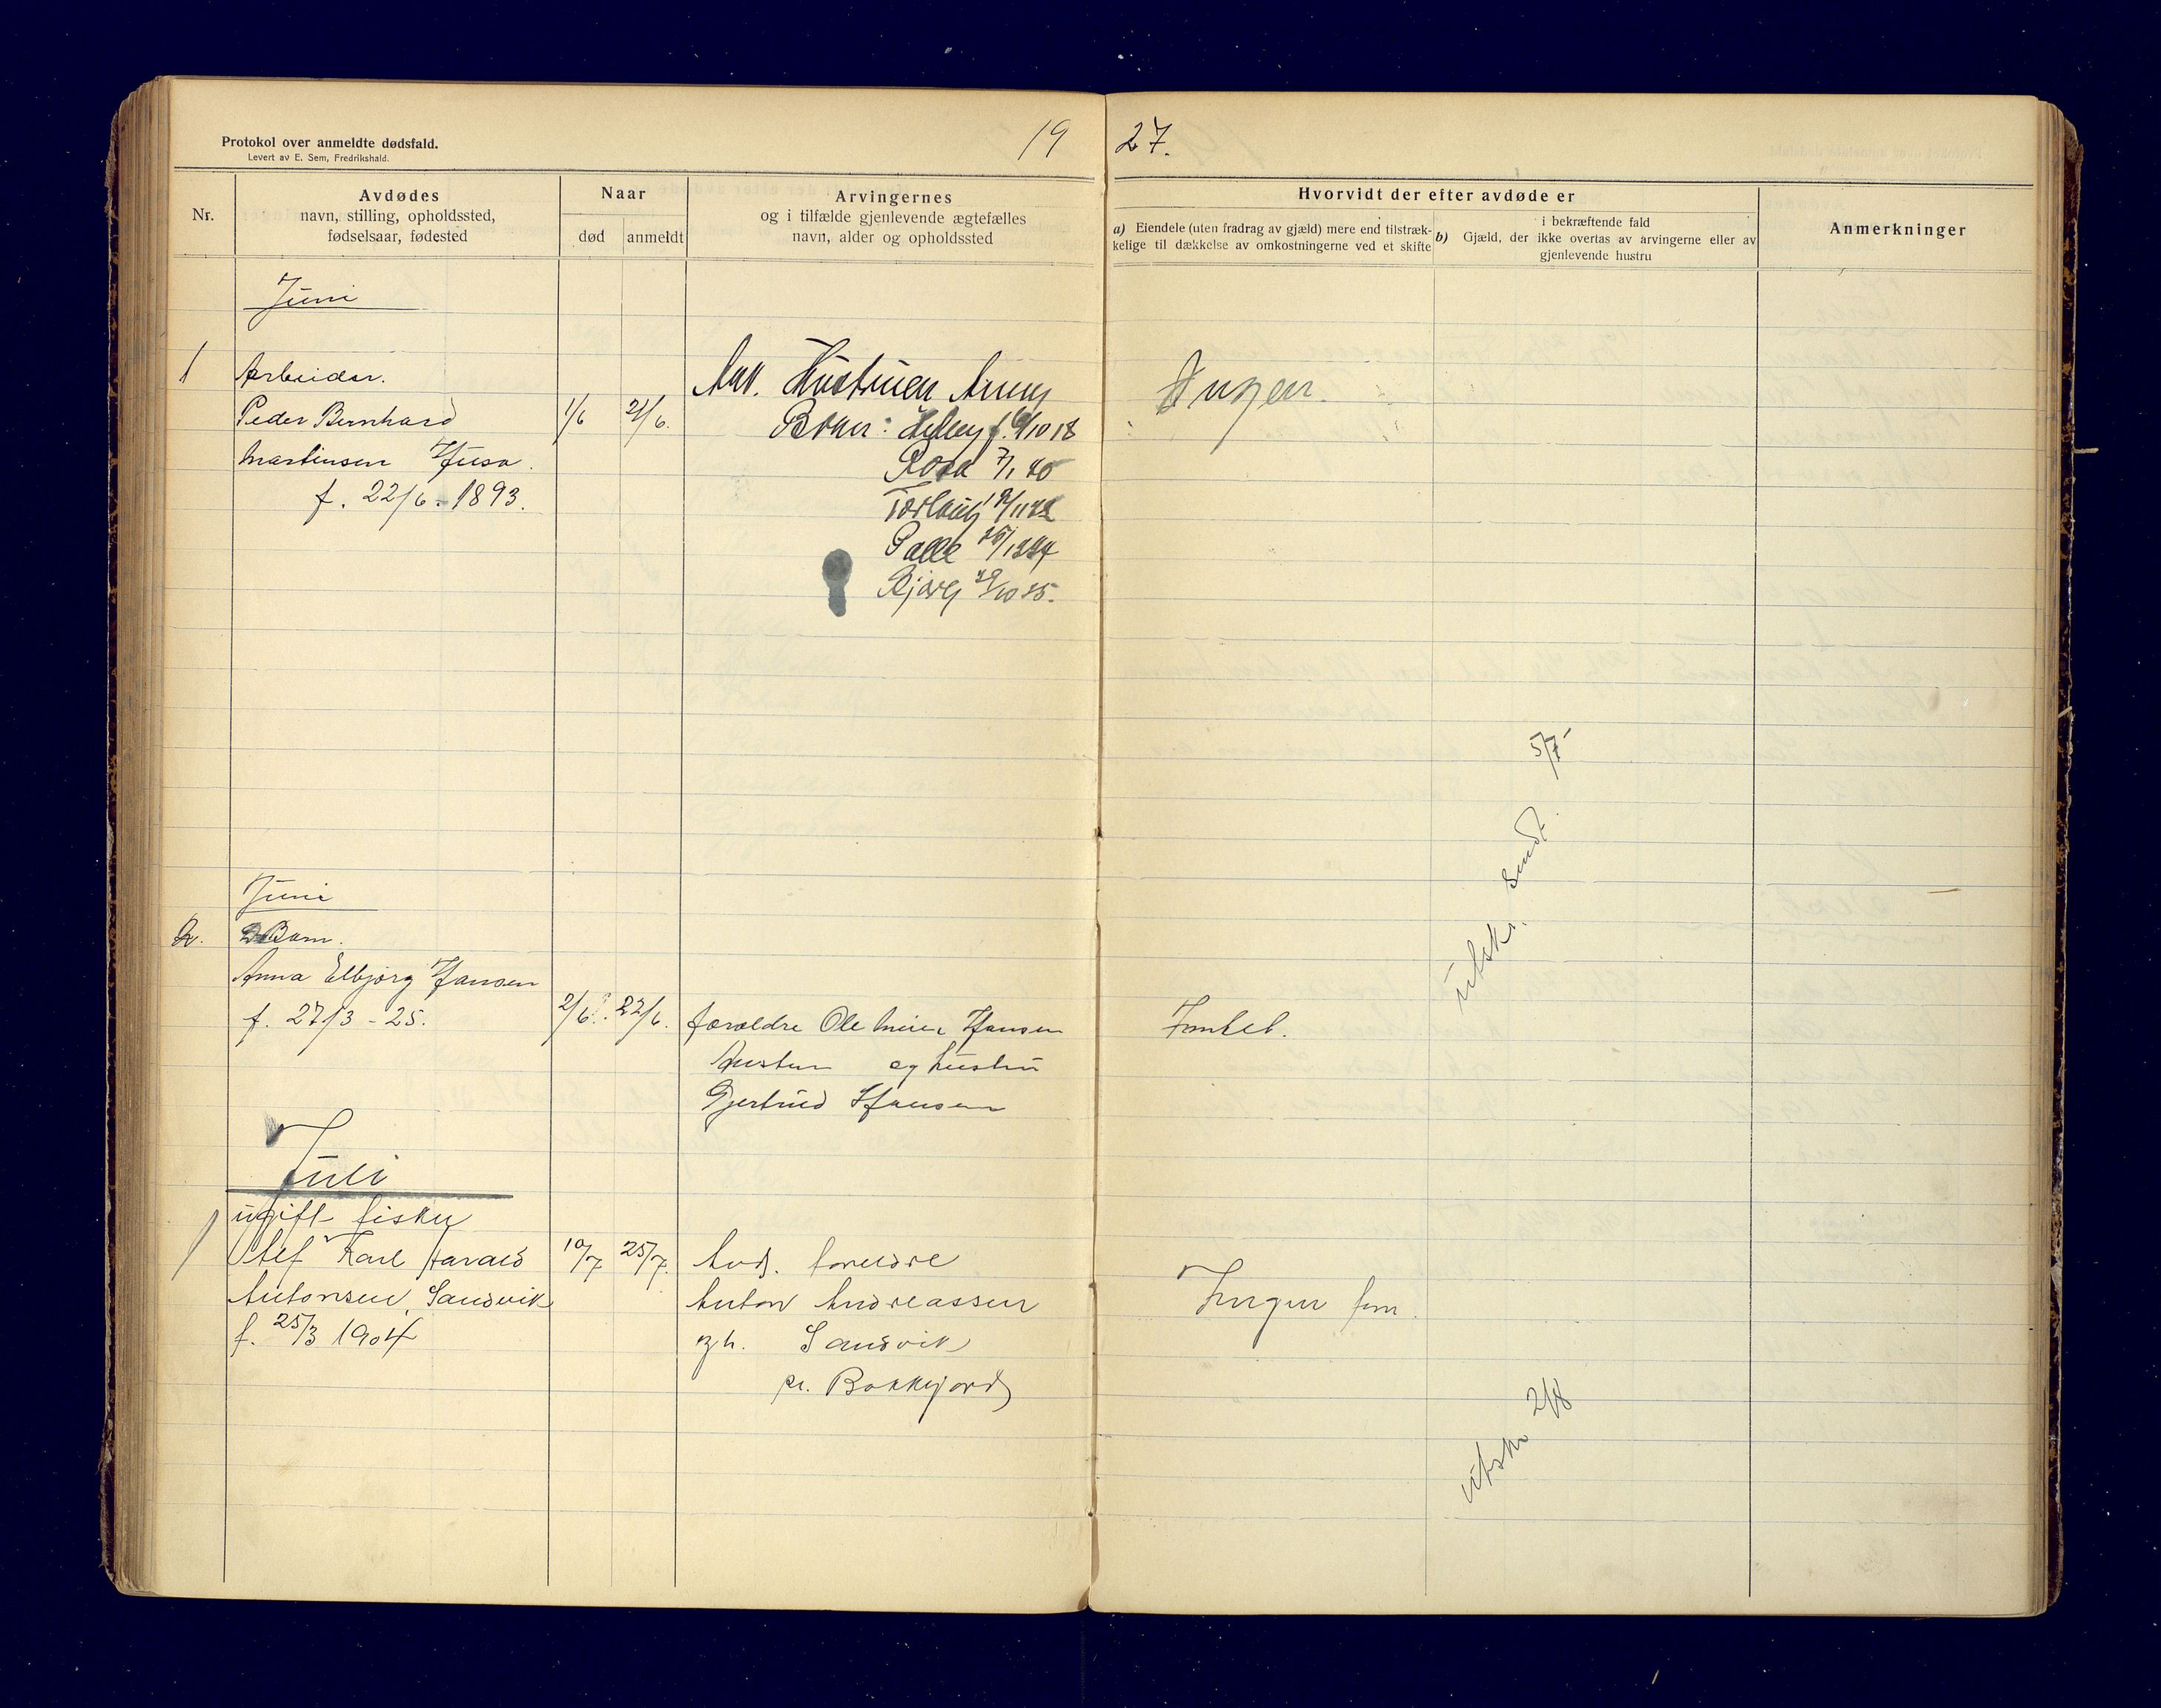 Protokol over anmeldte dødsfald.
Levert av E. Sem, Fredrikshald.
1927.
Nr.
Avdødes
navn, stilling, opholdssted,
fødselsaar, fødested
Naar
død
anmeldt
Arvingernes
og i tilfælde gjenlevende ægtefælles
navn, alder og opholdssted
Hvorvidt der efter avdøde er
a) Eiendele (uten fradrag av gjæld) mere end tilstræk-
kelige til dækkelse av omkostningerne ved et skifte
i bekræftende fald
b) Gjæld, der ikke overtas av arvingerne eller av
gjenlevende hustru
Anmerkninger
Juni
1
Arbeider.
Peder Bernhard
Martinsen
f. 22/6-1893.
1/6
Hustruen
Rosa 7/1
Palle
Bjørg
Ingen.
5/7
utskr. sendt.
Juni
2.
Barn.
Anna Elbjørg Hansen
f. 27/3-25.
2/6. 22/6.
forældre Ole Meier Hansen
og hustru
Gjertrud Hansen
Intet.
Juli
ugift fisker
1
Alf Karl Harald
Antonsen, Sandvik
f. 25/3 1904
10/7
25/7.
foreldre
Anton Andreassen
og h. Sandvik
pr. Bakkejord
Ingen
utskr 2/8